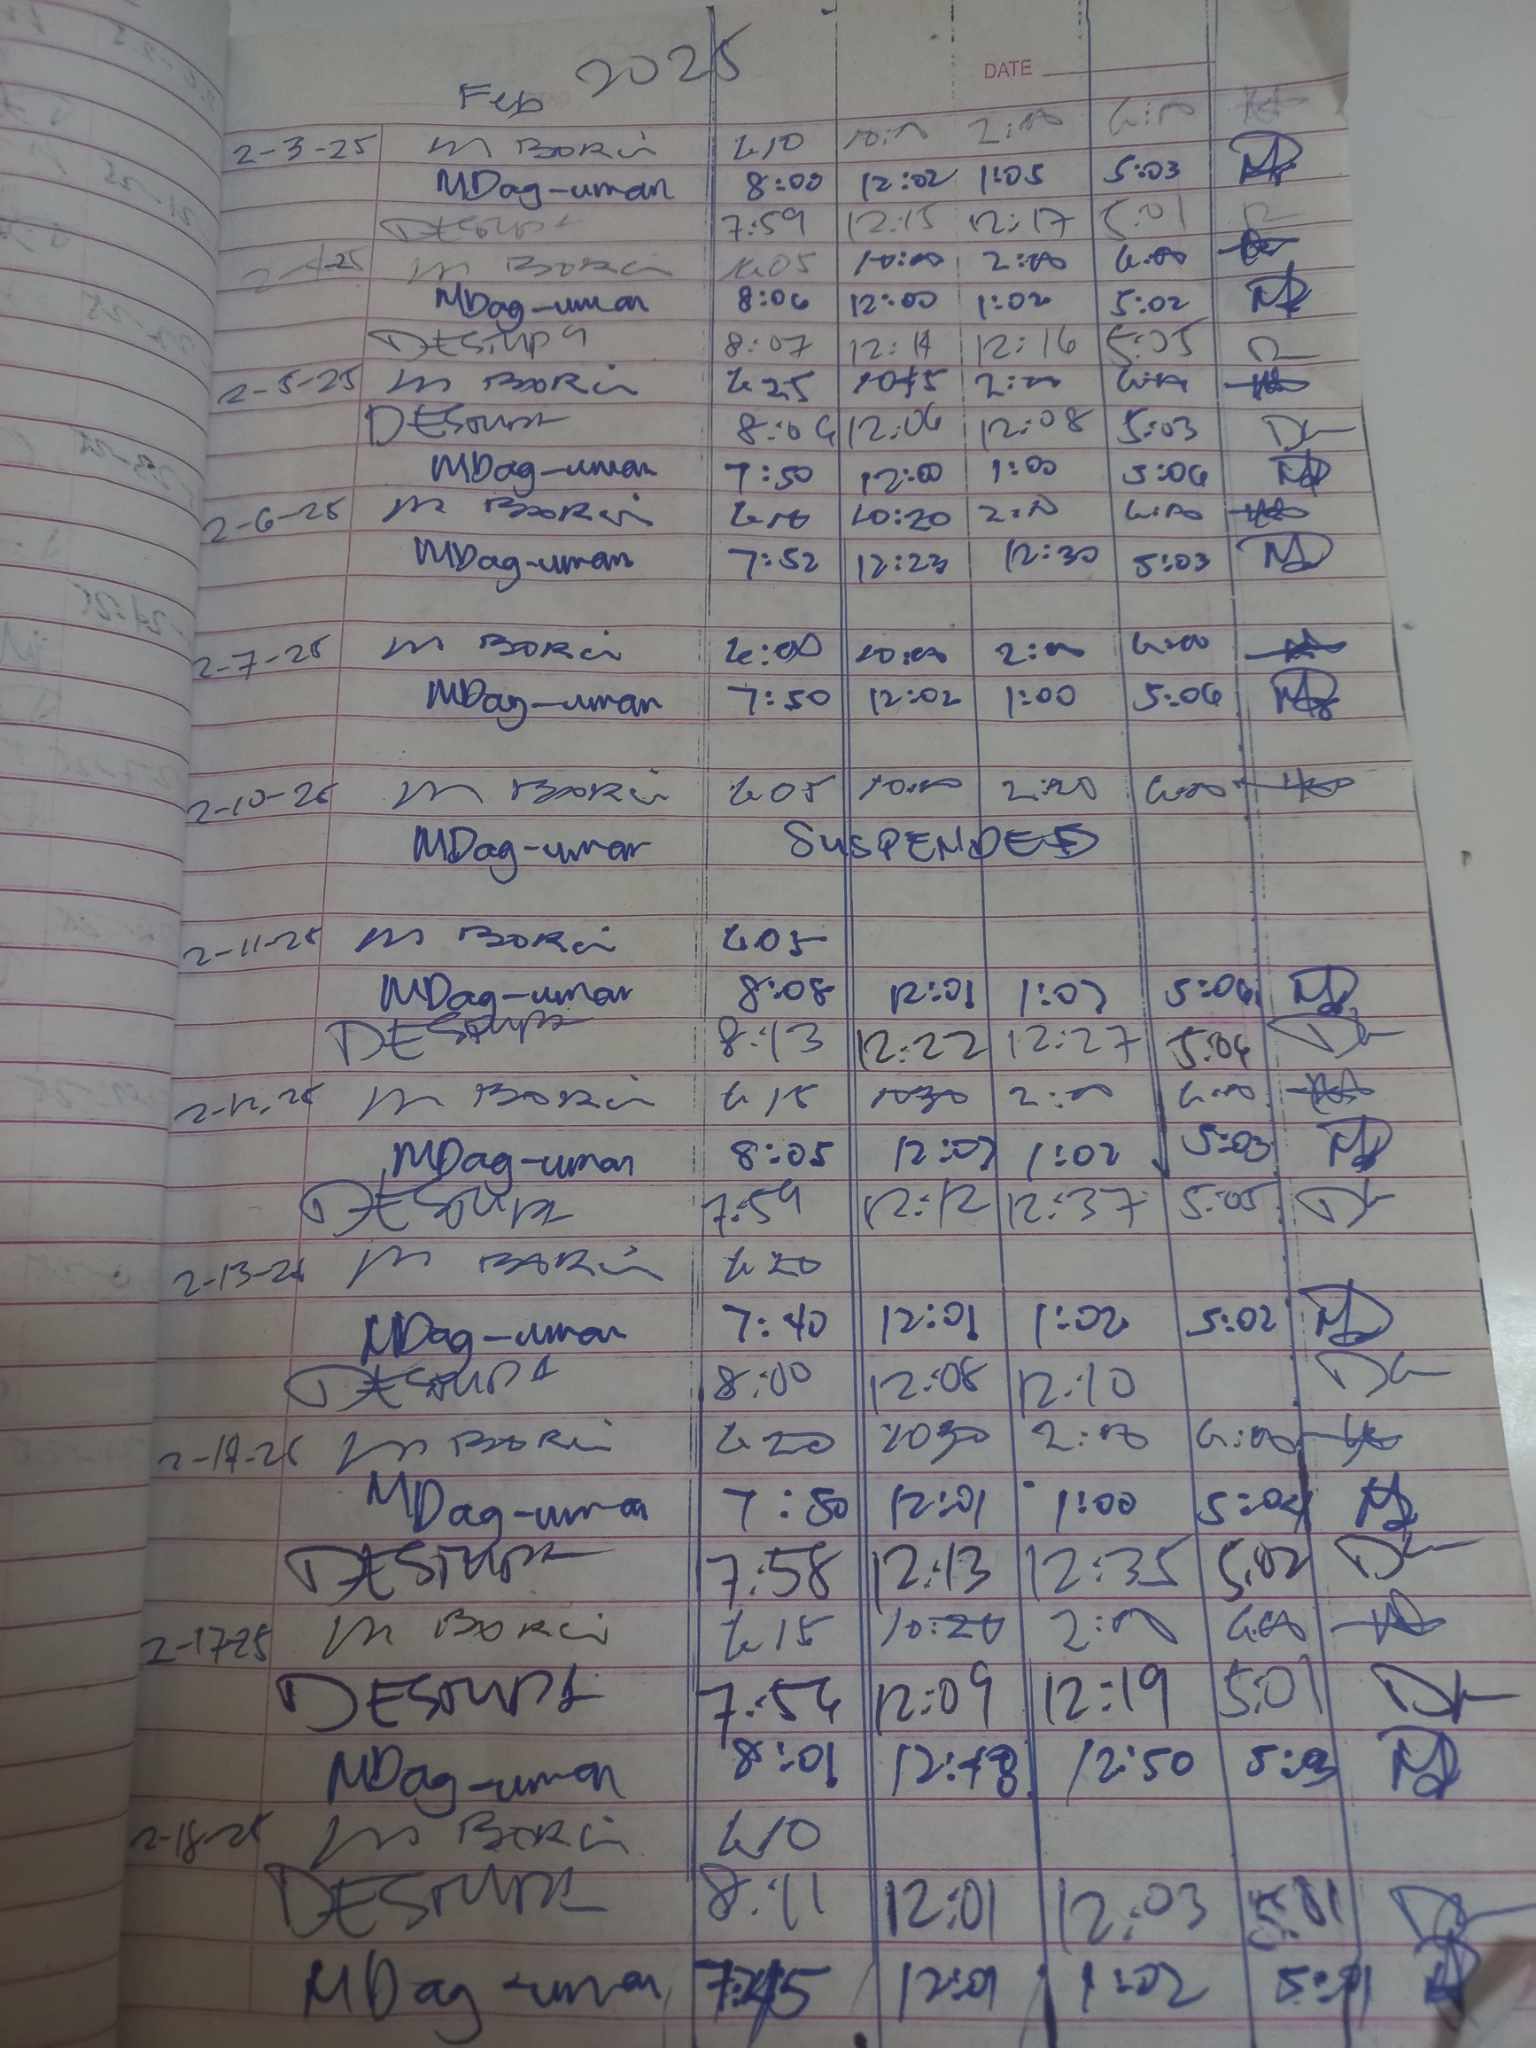 Feb 2025
DATE
2-3-25 M Borci 6:10 10:00 2:00 6:00
MDag-uman 8:00 12:02 1:05 5:03
7:59 12:15 12:17 5:01
M Borci 6:05 10:00 2:00 6:00
MDag-uman 8:06 12:00 1:02 5:02
8:07 12:14 12:16 5:05
2-5-25 M Borci 6:25 2:00 6:00
8:06 12:06 12:08 5:03
MDag-uman 7:50 12:00 1:00 5:06
2-6-25 M Borci 6:10 10:20 2:00 6:00
MDag-uman 7:52 12:23 12:30 5:03
2-7-25 M Borci 6:00 10:00 2:00 6:00
MDag-uman 7:50 12:02 1:00 5:06
2-10-25 M Borci 6:05 10:00 6:00
MDag-uman SUSPENDED
2-11-25 M Borci 6:05
MDag-uman 8:08 12:01 1:07 5:06
8:13 12:22 12:27 5:06
2-12-25 M Borci 6 15 1030 2:00 6:00
MDag-uman 8:05 1:02 5:03
7:59 12:12 12:37 5:05
2-13-25 M Borci 6 20
MDag-uman 7:40 12:01 1:02 5:02
8:00 12:08 12:10
2-14-25 M Borci 6 20 1030 2:00 6:00
MDag-uman 7:50 12:01 1:00 5:04
7:58 12:13 12:35 5:02
2-17-25 M Borci 6 15 10:20 2:00 6:00
7:56 12:09 12:19 5:01
MDag-uman 8:01 12:48 12:50 5:03
2-18-25 M Borci 6 10
8:11 12:01 12:03 5:01
MDag-uman 7:45 12:01 1:02 5:01